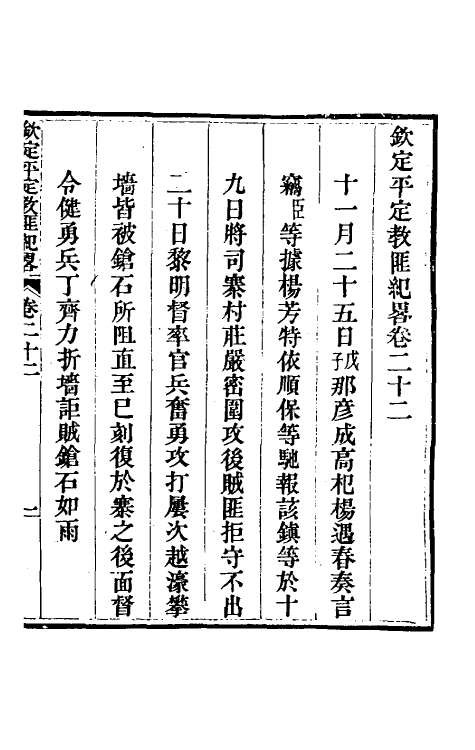 欽定平定教匪紀畧卷二十二
十一月二十五日戊子那彥成高杞楊遇春奏言
竊臣等據楊芳特依順保等馳報該鎮等於十
九日將司寨村莊嚴密圍攻後賊匪拒守不出
二十日黎明督率官兵奮勇攻打屢次越濠攀
墻皆被鎗石所阻直至巳刻復於寨之後面督
令健勇兵丁齊力折墻詎賊鎗石如雨
欽定平定教匪紀畧 卷二十二 一